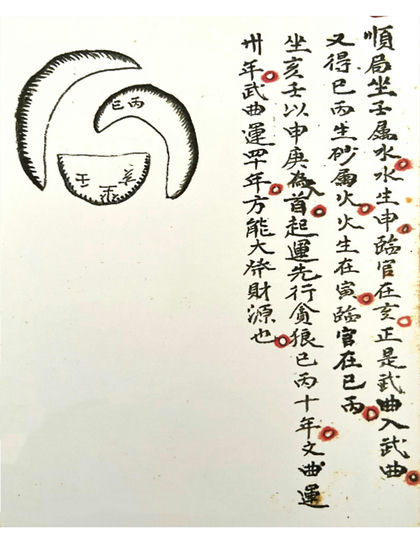 順局坐壬屬水水生申臨官在亥正是武曲入武曲
又得巳丙生砂屬火火生在寅臨官在巳丙
坐亥壬以申庚為首起運先行貪狼巳丙十年文曲運
卅年武曲運四十年方能大發財源也
巳丙
亥壬